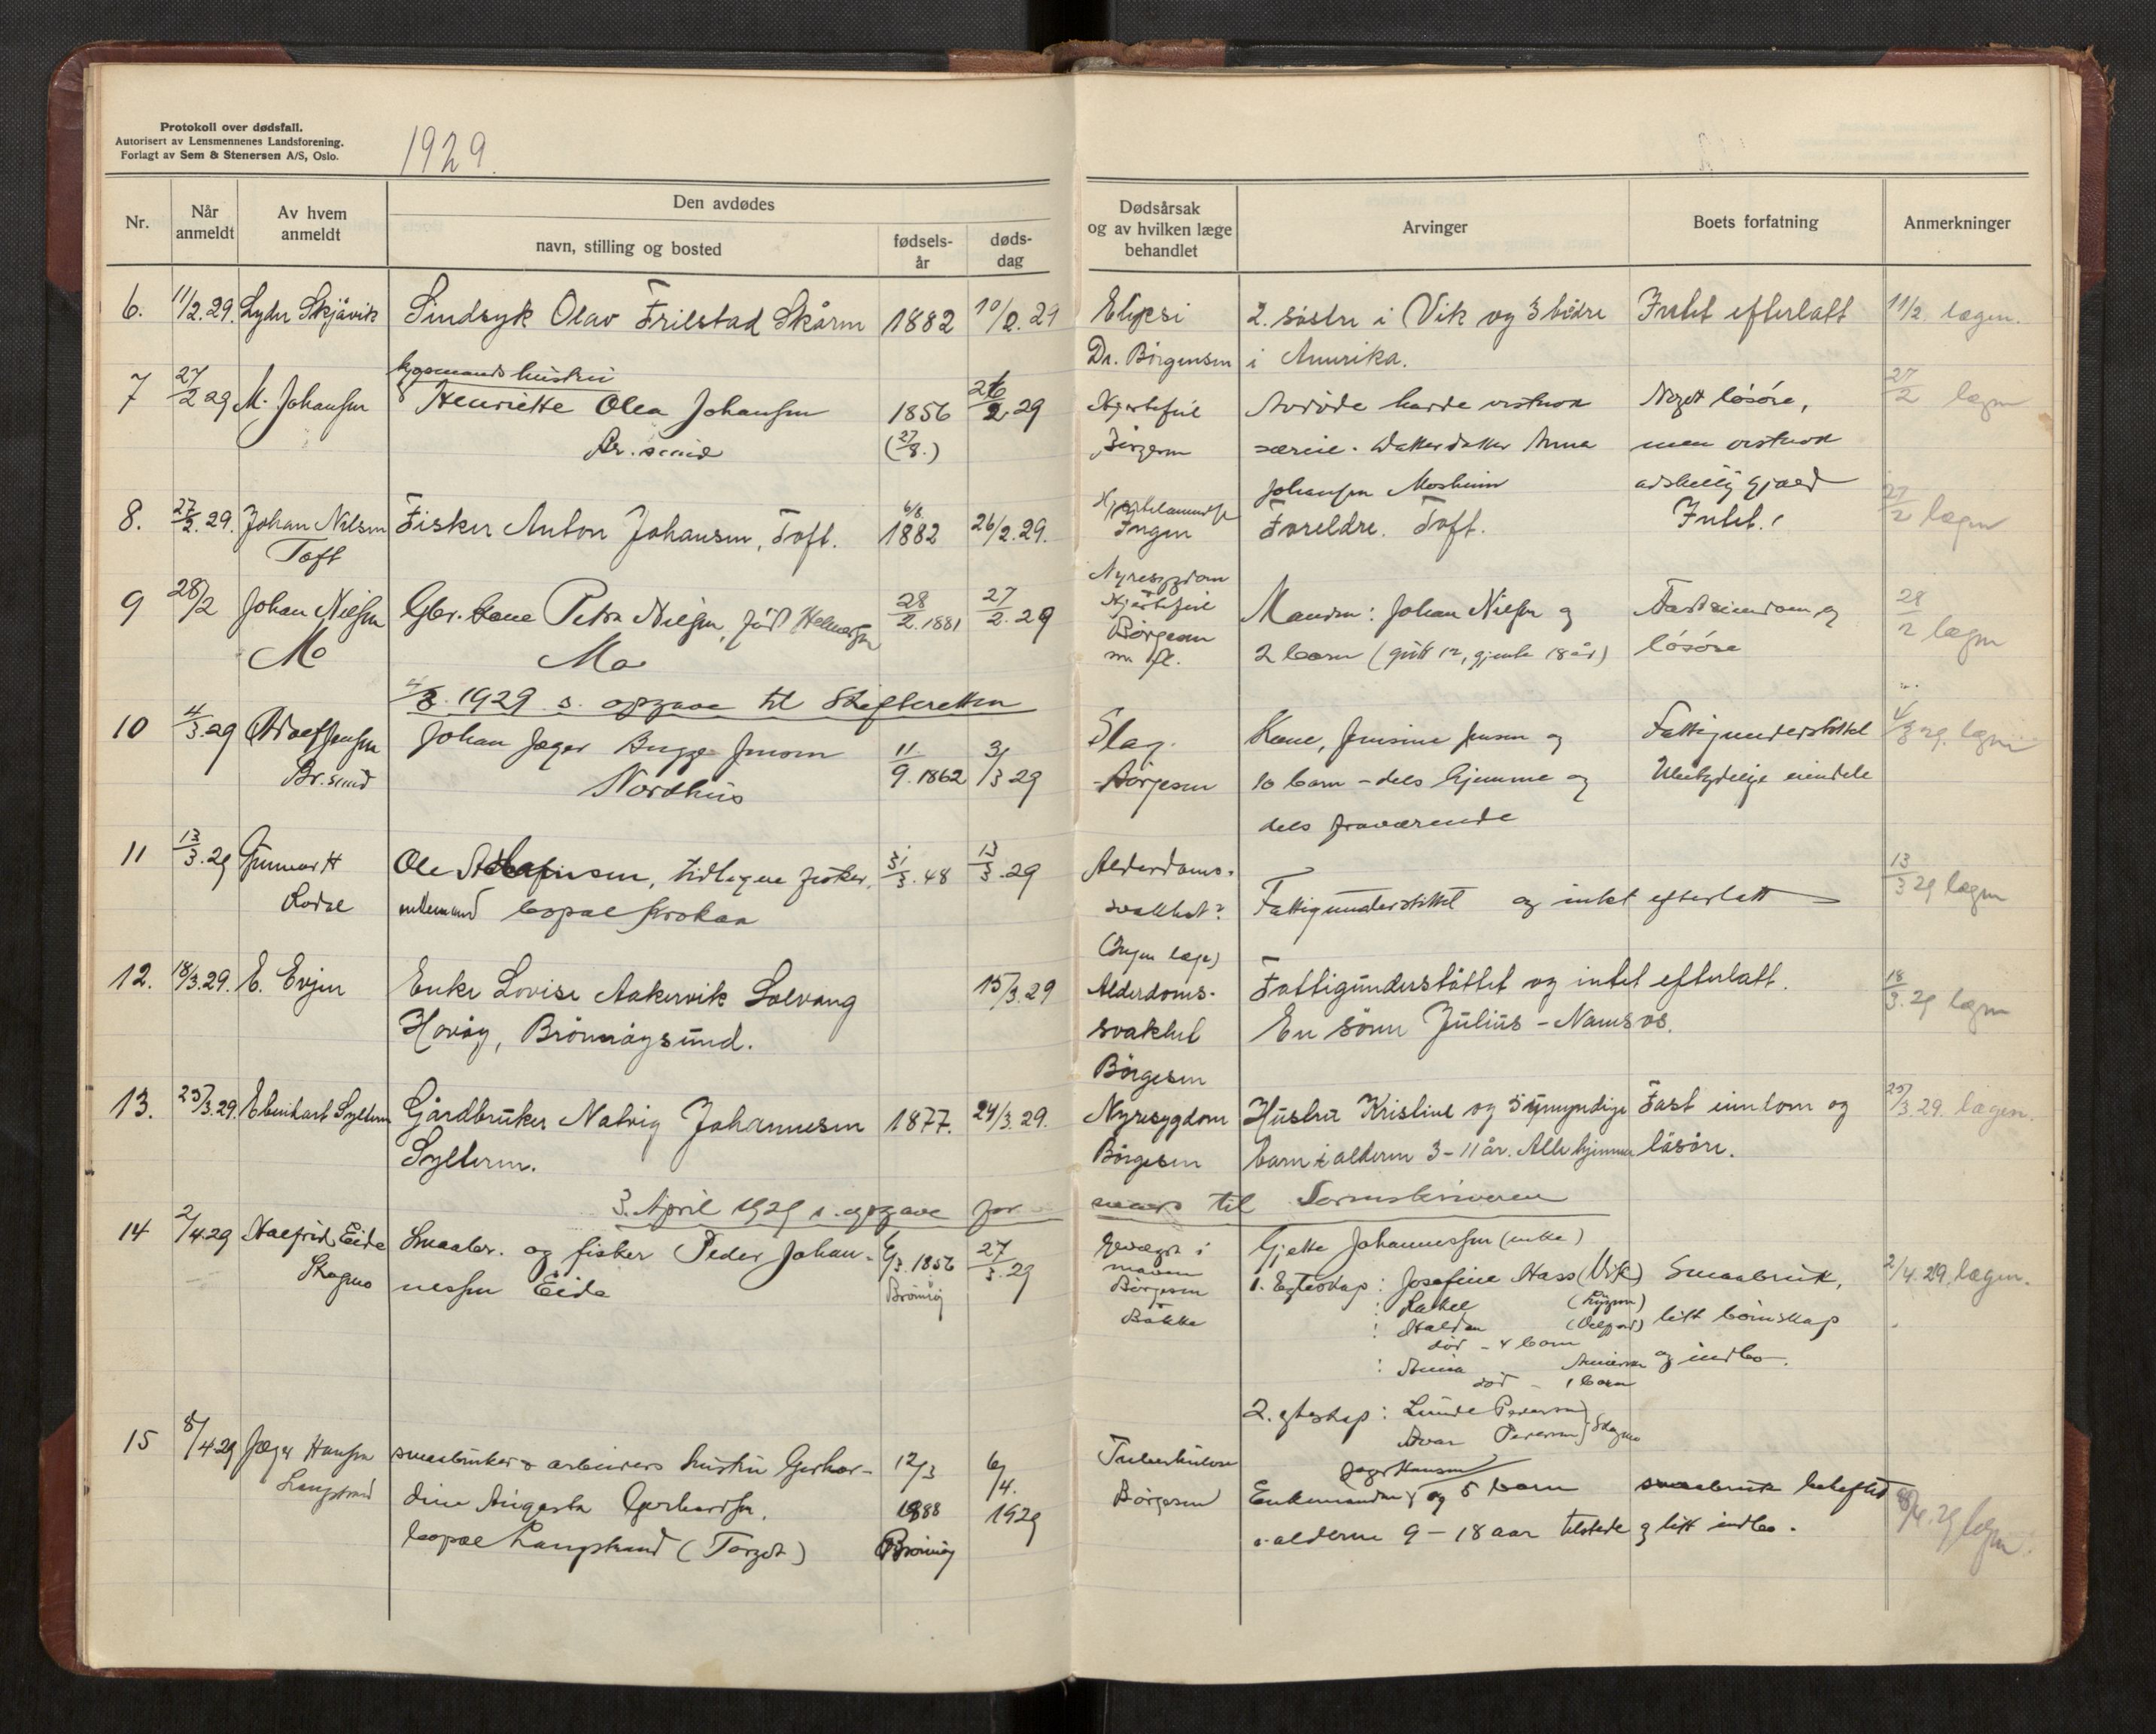 Protokoll over dødsfall.
Autorisert av Lensmennenes Landsforening.
Forlagt av Sem & Stenersen A/S, Oslo.
1929.
Nr.
Når anmeldt
Av hvem anmeldt
Den avdødes
navn, stilling og bosted
fødsels-år
døds-dag
Dødsårsak og av hvilken læge behandlet
Arvinger
Boets forfatning
Anmerkninger
6. 11/2.29. Lyder Skjåvik Sindsyk Olav Frilstad Skårm 1882 10/2.29 2 søstre i Vik og 3 brødre Intet efterlatt 11/2 lægen.
Dr. Börgensen i Amerika.
hustru
7 27/2 29 M. Johansen Henriette Olea Johansen 1856 26/2 29 Hjertefeil Avdøde hadde vistnok Noget løsøre, 27/2 lægen
Br.sund (27/8.) Börgesen særeie. Datterdatter Anna men vistnok
Johansen Mosheim adskillig gjæld
8. 27/2.29. Johan Nilsen Fisker Anton Johansen, Toft. 6/8 1882 26/2.29. Ingen Foreldre. Toft. Intet. 27/2 lægen
Toft
Nyresygdom
9 28/2 Johan Nielsen Gbr. kone Petra Nielsen, född Helmersen 28/2.1881 27/2.29 Hjertefeil Manden: Johan Nielsen og Fast eiendom og 28/2 lægen
Mo Mo Börgesen m. fl. 2 barn (gutt 12, gjente 18 år) løsøre
4/3. 1929 s. opgave til Skifteretten
10 4/3.29 Adolf Jensen Johan Jæger Bugge Jensen 11/9.1862 3/3 29 Slag. Kone, Jensine Jensen og Fattigunderstöttet 4/3 29. lægen
Br.sund Nordhus Börgesen 10 barn - dels hjemme og Ubetydelige eiendele
dels fraværende
11 13/3.29 Gunnar H Ole, tidligere fisker, 31/3.48 13/3.29 Alderdoms- 13/3 29 lægen
Rodal bopæl svakhet? Fattigunderstöttet og intet efterlatt
(Ingen læge)
12. 18/3.29. E. Evjen Enke Lovise Aakervik Solvang 15/3.29 Alderdoms- Fattigunderstöttet og intet efterlatt. 18/3.29 lægen
Havöy, Brönnöysund. svakhet En sönn Julius - Namsos.
Börgesen
13. 25/3.29. Ebenhart Sylteren Gårdbruker Natvig Johannesen 1877. 24/3.29. Nyresygdom Hustru Kristine og 5 umyndige Fast eiendom og 25/3.29. lægen.
Sylteren. Börgesen barn i alderen 3-11 år. Alle hjemme løsøre.
3. April 1929 s. opgave til Sorenskriveren
14 2/4 29 Halfrid Eide Smaabr. og fisker Peder Johan- 6/3.1856 27/3.29 Gjette Johannessen (enke)
Skogmo nessen Eide Brönnöy maven 1. Egteskap: Josefine Hass (Vik) Smaabruk, 2/4.29. lægen.
Börgesen : Rakel litt böimskap
Bakke : Haldan död - 4 barn
: Anna og indbo.
död - 1 barn
2. egteskap: Lunde Pedersen
Pedersen } Skogmo
15 8/4.29 Jæger Hansen smaabruker & arbeiders hustru Gerhar- 12/3 6/4. Tuberkulose Jæger Hansen
Langstrand dine Augusta Gerhardsen. 1888 1929 Börgesen Enkemanden og 5 barn smaabruk beheftet 8/4.29 lægen.
bopæl Langstrand (Torget) Brönnöy i alderen 9-18 aar tilstede og litt indbo.